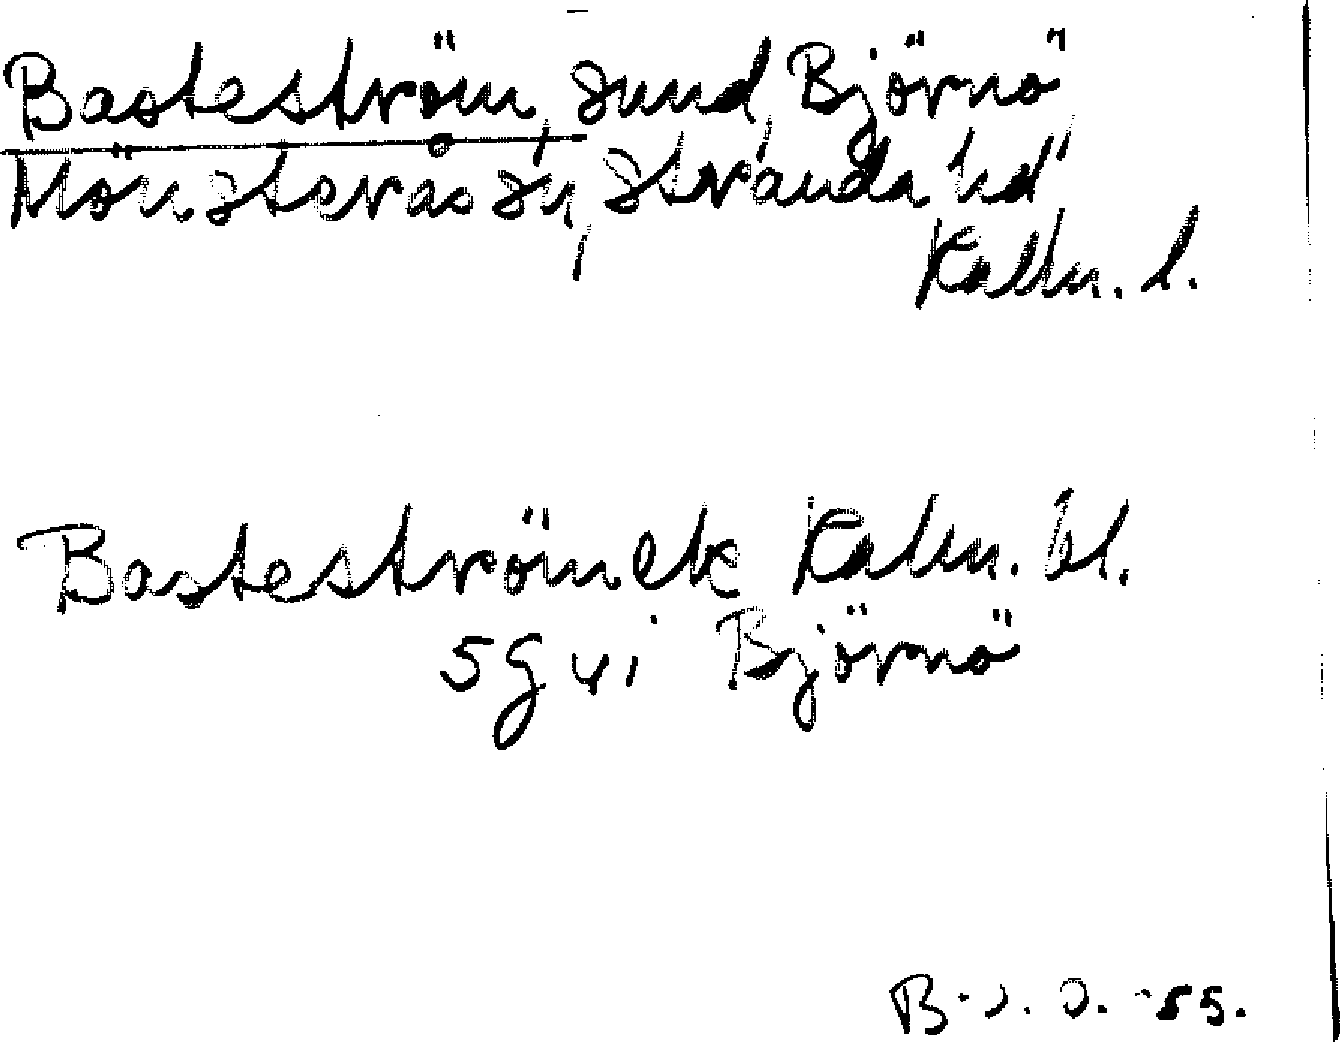 Basteström, sund, Björnö,
Mönsterås sn, Stranda hd,
Kalm. l.
Basteström ek Kalm. bl.
5g vi Björnö
B. J. O. -55.